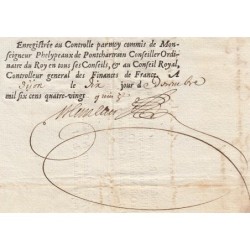 Enregistrée au Controlle par moy commis de Mon-
seigneur Phelypeaux de Pontchartrain Conseiller Ordi-
naire du Roy en tous ses Conseils, & au Conseil Royal,
Controlleur general des Finances de France, A
Dijon le Six jour de Decembre
mil six cens quatre-vingt